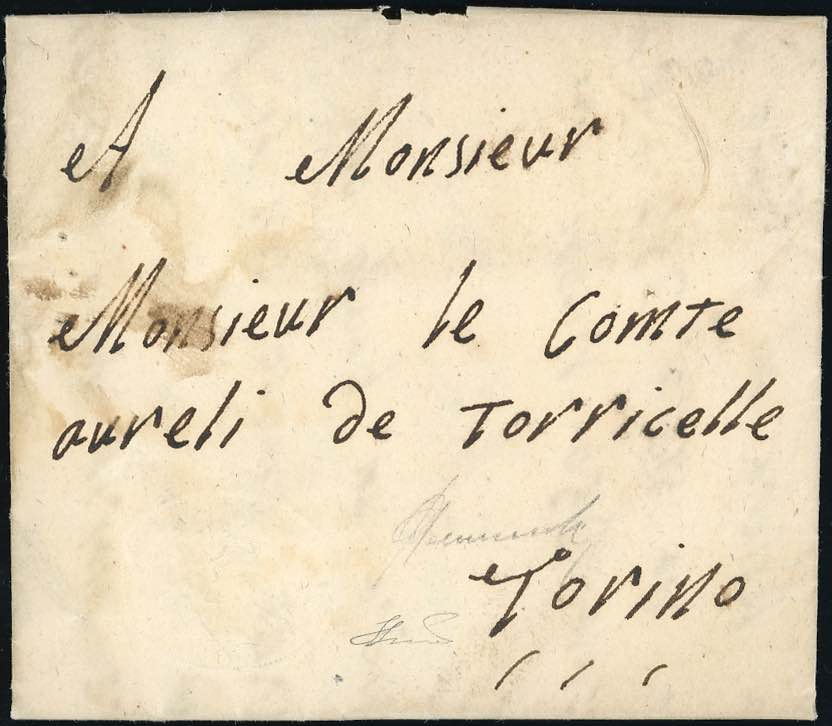 A Monsieur
Monsieur le Comte
aureli de Torricelle
Torino